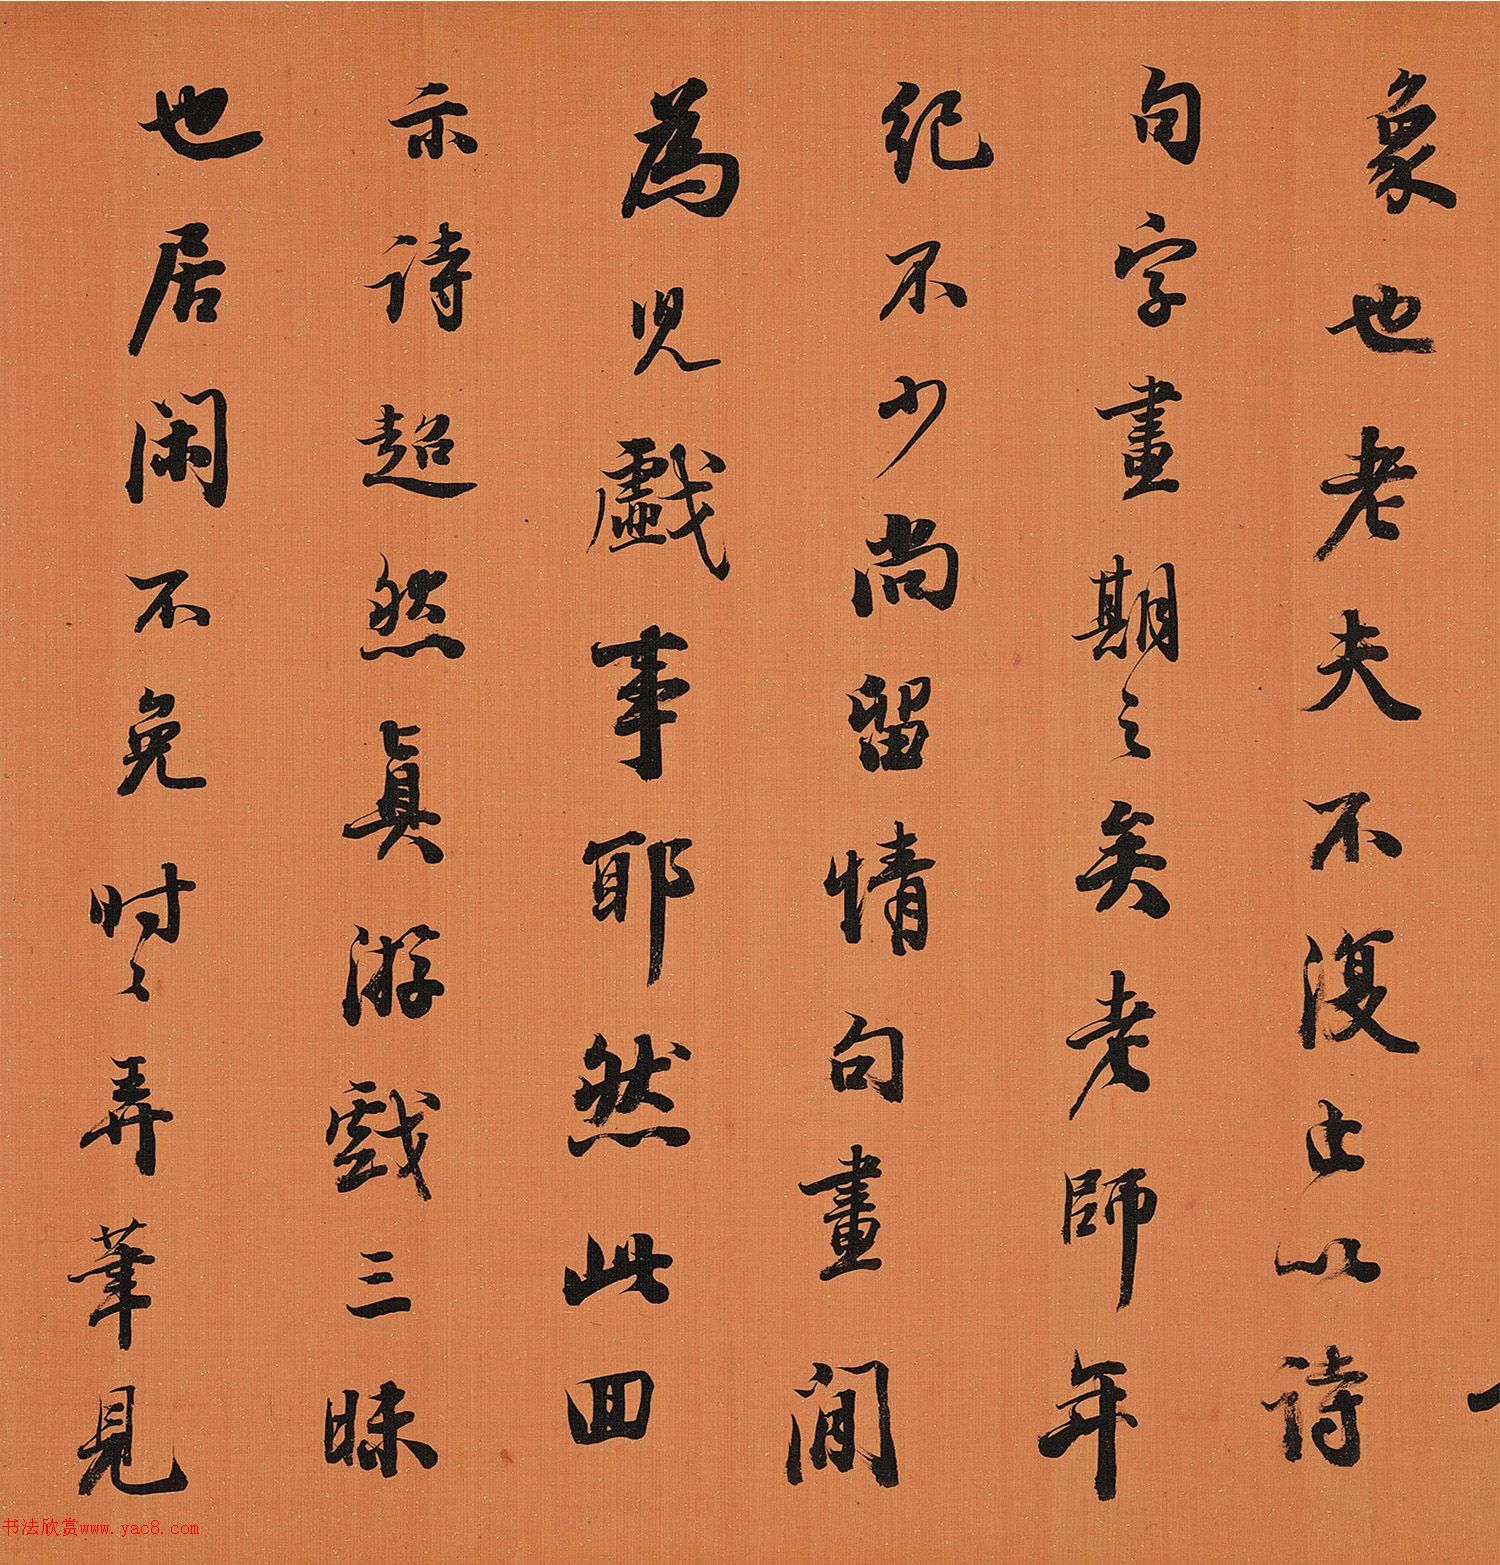 象也老夫不復止以詩
句字畫期之矣老師年
紀不少尚留情句畫間
為兒戲事耶然此回
示詩超然真游戲三昧
也居闲不免时〻弄筆見
书法欣赏www.yac8.com